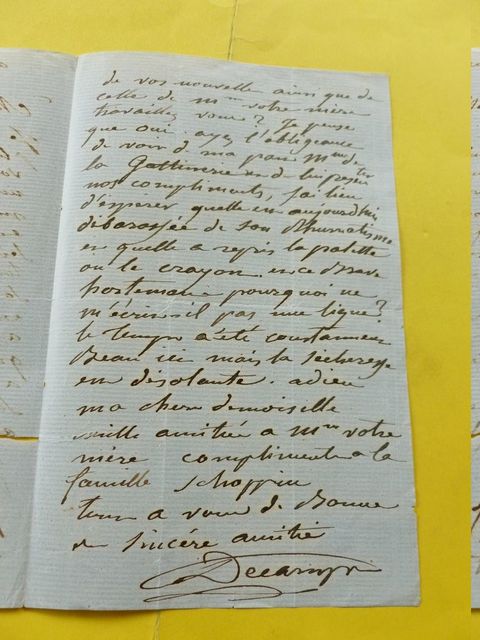 de vos nouvelle ainsi que de
celle de Mme votre mère
travaillez vous? Je pense
que oui. ayez l'obligeance
de voir d ma part Mme de
la Gattinerie et de lui présenter
nos compliments, j'ai lieu
d'esperer quelle est aujourd'hui
débarassée de son Rhumatisme
et quelle a repris la palette
ou le crayon. et ce Brave
pourquoi ne
m'écrit-il pas une ligne?
le temps a été constamment
Beau ici mais la sécheresse
est désolante. adieu
ma chere demoiselle
mille amitiée a Mme votre
mère compliments a la
famille Schoppin
tout a vous de Bonne
et sincére amitié
Decamps